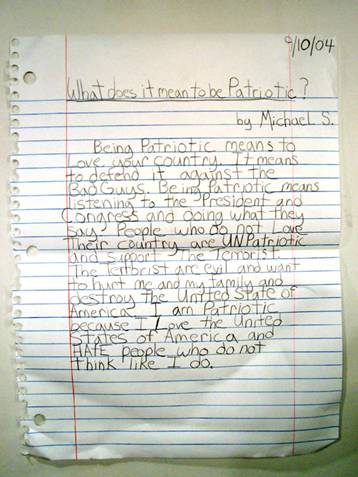 9/10/04
What does it mean to be Patriotic?
by Michael S.
Being Patriotic means to
Love your country. It means
to defend it against the
Bad Guys. Being Patriotic means
listening to the President and
Congress and doing what they
say. People who do not Love
Their country are UNPatriotic
and support The Terrorist.
The Terrorist are evil and want
to hurt me and my family and
destroy the United State of
America. I am Patriotic
because I Love the United
States of America and
HATE people who do not
think like I do.